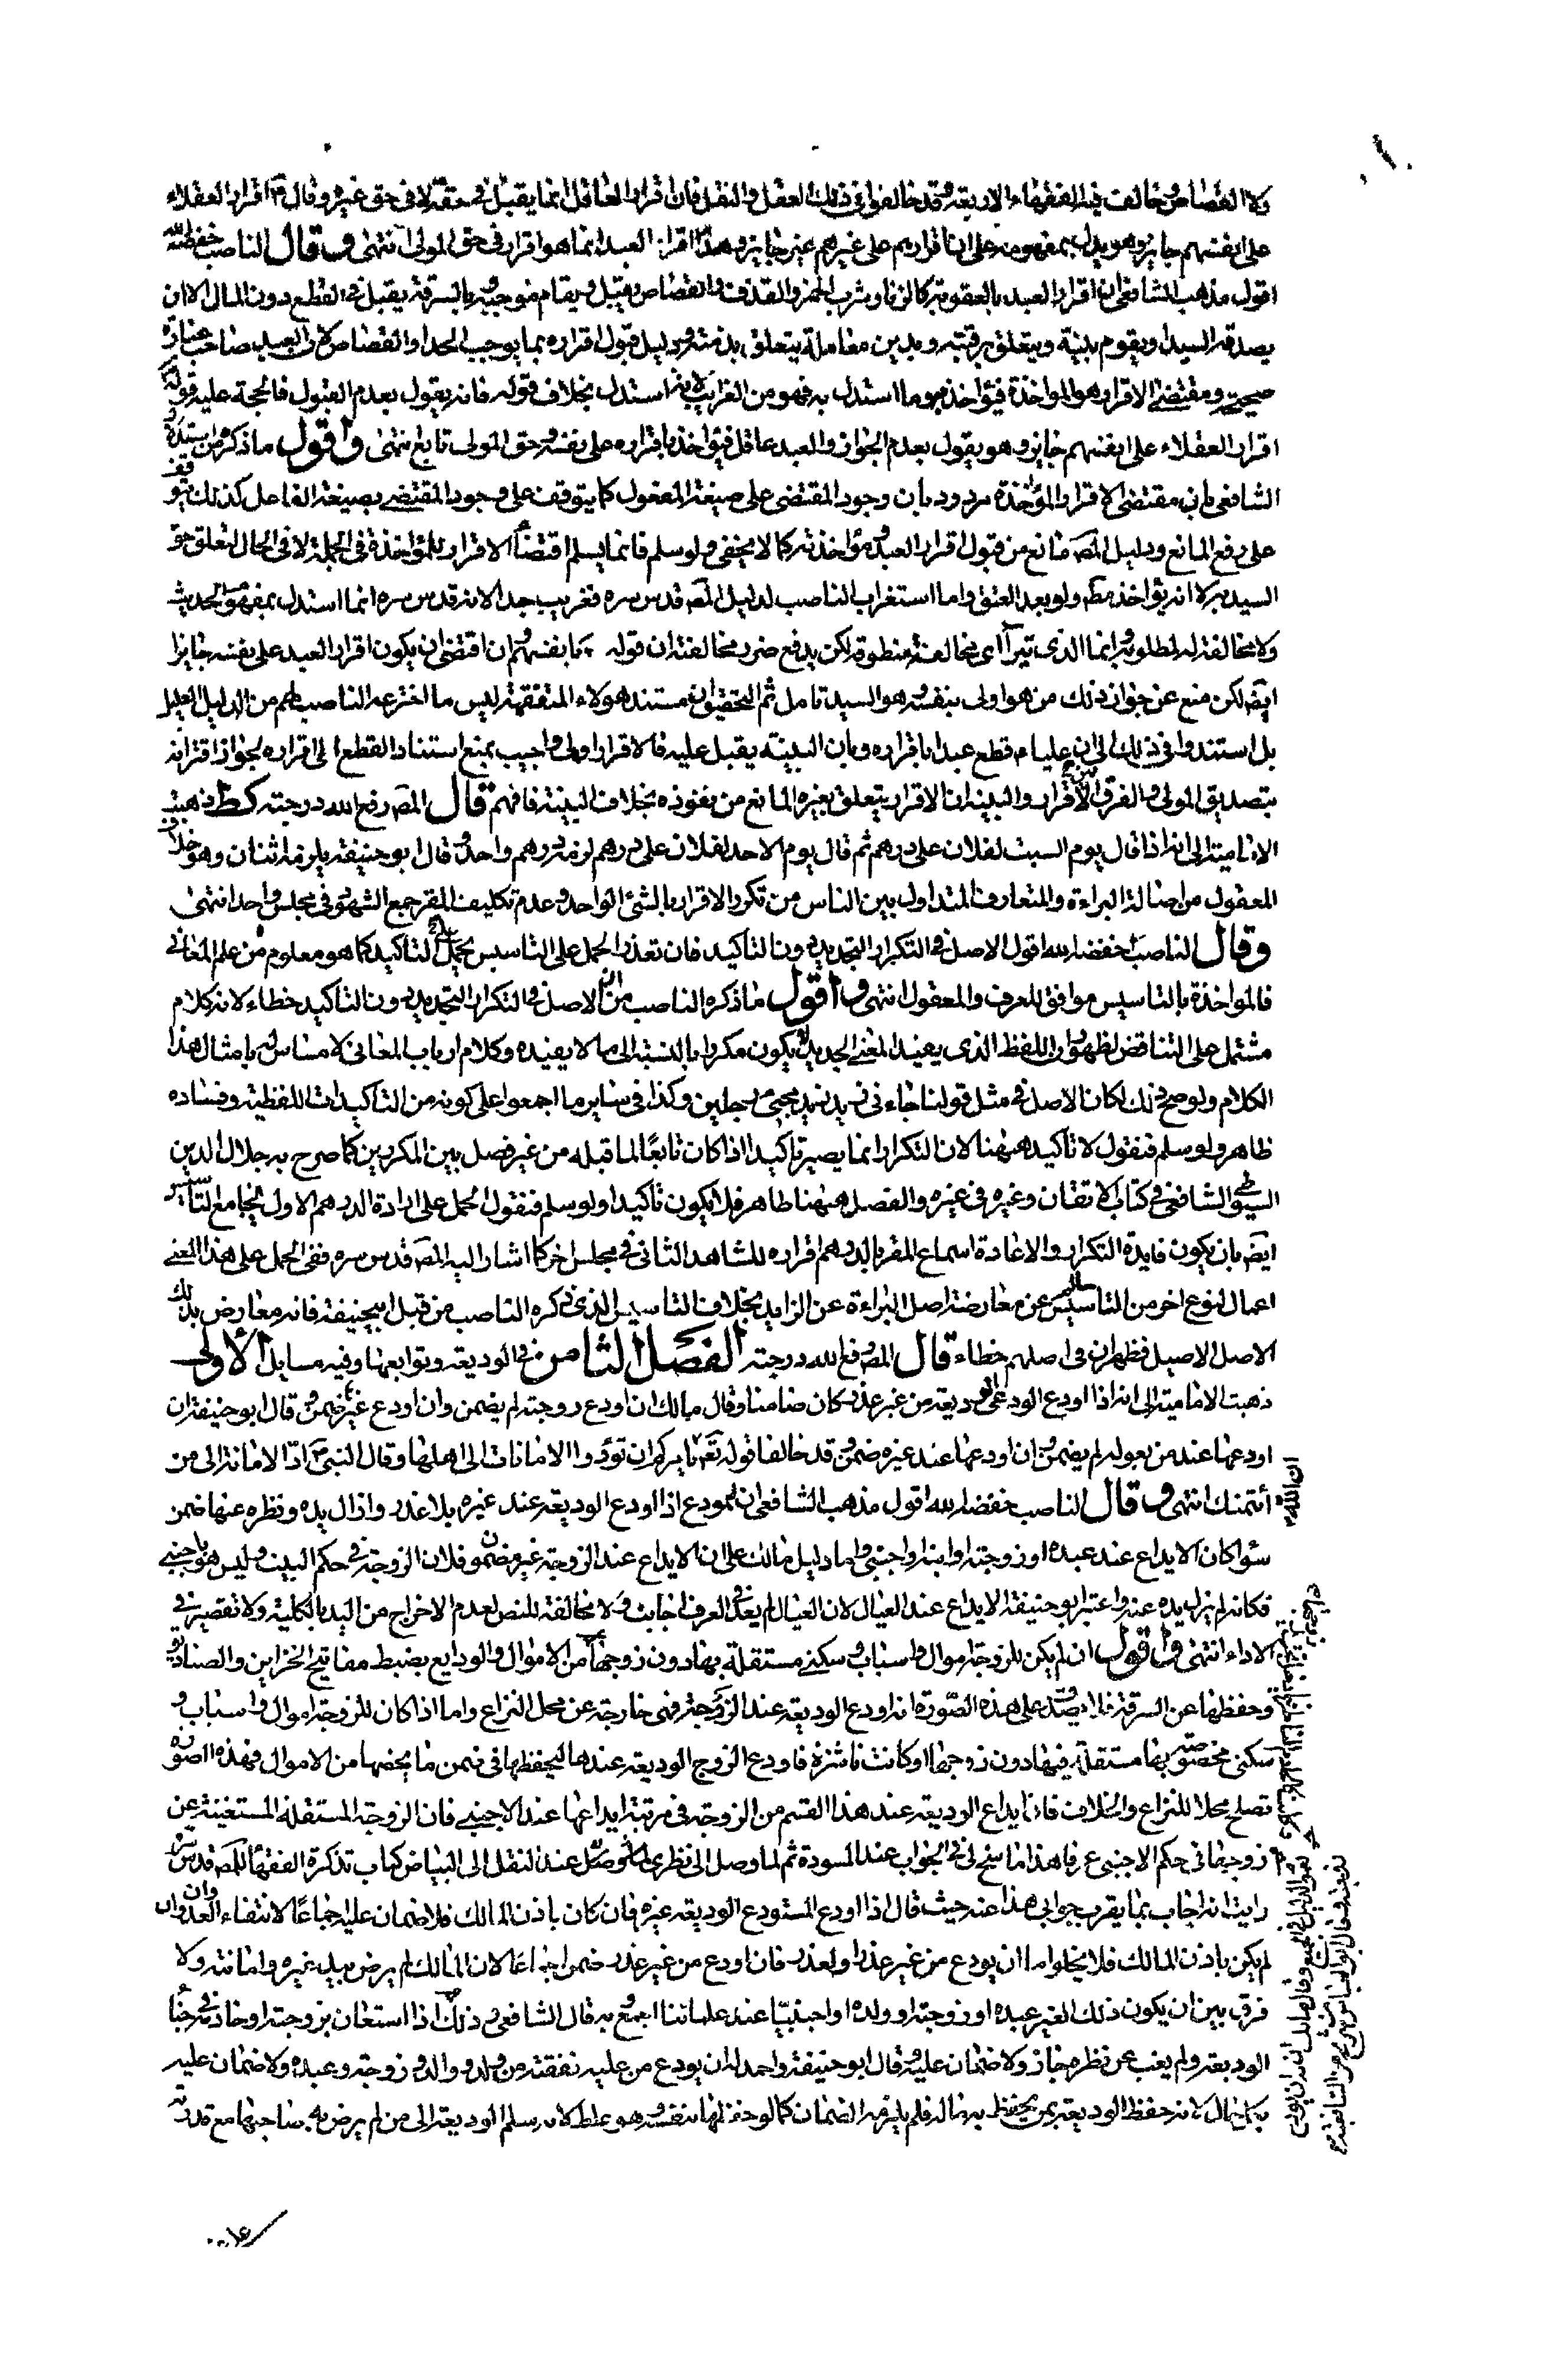 ولا القصاص وخالفت فيه الفقهاء الاربعة وقد خالفوا في ذلك العقل والنقل فان اقرار العاقل انما يقبل في حقه لا في حق غيره وقال اقرار العقلاء
على انفسهم جايز وهو يدل بمفهومه على ان اقرارهم على غيرهم غير جايز وهذا اقرار العبد انما هو اقرار في حق المولى انتهى وقال الناصب خفضه الله
اقول مذهب الشافعي ان اقرار العبد بالعقوبة كالزنا وشرب الخمر والقذف والقصاص يقبل ويقام موجبه وبالسرقة يقبل في القطع دون المال الا ان
يصدقه السيد او يقوم بينة ويتعلق برقبته وبدين معاملة يتعلق بذمته ودليل قبول اقراره بما يوجب الحد او القصاص كون العبد صاحب عبارة
صحيحة ومقتضى الاقرار هو المواخذة فيؤاخذ به وما استدل به فهو من الغرايب لانه استدل بخلاف قوله فانه يقول بعدم القبول فالحجة عليه قوله
اقرار العقلاء على انفسهم جايز وهو يقول بعدم الجواز والعبد عاقل فيؤاخذ باقراره على نفسه وحق المولى تابع انتهى واقول ما ذكره من استدلال
الشافعي بان مقتضى الاقرار المؤاخذة مردود بان وجود المقتضى على صيغة المفعول كما يتوقف على وجود المقتضي بصيغة الفاعل كذلك يتوقف
على رفع المانع ودليل المص مانع من قبول اقرار العبد ومؤاخذته كما لا يخفى ولو سلم فانما يسلم اقتضاء الاقرار للمؤاخذة في الجملة لا في الحال لتعلق حق
السيد به لا انه يؤاخذ مط ولو بعد العتق واما استغراب الناصب لدليل المص قدس سره فغريب جدا لانه قدس سره انما استدل بمفهوم الحديث
ولا مخالفة له لمطلوبه وانما الذي يتراآى مخالفته منطوقه لكن يدفع ضرر مخالفته ان قوله بانفسهم وان اقتضى ان يكون اقرار العبد على نفسه جايزا
ايض لكن منع عن جواز ذلك من هو اولى بنفسه وهو السيد تامل ثم التحقيق ان مستند هولاء المتفقهة ليس ما اخترعه الناصب لهم من الدليل العليل
بل استندوا في ذلك الى ان عليا م قطع عبدا باقراره وبان البينة يقبل عليه فالاقرار اولى واجيب بمنع استناد القطع الى اقراره لجواز اقترانه
بتصديق المولى وبالفرق بين الاقرار والبينة ان الاقرار يتعلق بغيره المانع من نفوذه بخلاف البينة فافهم قال المص رفع الله درجته كط ذهبت
الامامية الى انه اذا قال يوم السبت لفلان على درهم ثم قال يوم الاحد لفلان على درهم لزمه درهم واحد وقال ابو حنيفة يلزمه اثنان وهو خلاف
المعقول من اصالة البراءة والمتعارف المتداول بين الناس من تكرر الاقرار بالشئ الواحد وعدم تكليف المقر جمع الشهود في مجلس واحد انتهى
وقال الناصب خفضه الله اقول الاصل في التكرار التجديد دون التاكيد فان تعذر الحمل على التاسيس يحمل على التاكيد كما هو معلوم من علم المعاني
فالمواخذة بالتاسيس موافق للعرف والمعقول انتهى واقول ما ذكره الناصب من ان الاصل في التكرار التجديد دون التاكيد خطاء لانه كلام
مشتمل على التناقض لظهور ان اللفظ الذي يفيد المعنى الجديد لا يكون مكررا بالنسبة الى ما لا يفيده وكلام ارباب المعاني لا مساس له بامثال هذا
الكلام ولو صح ذلك لكان الاصل في مثل قولنا جاءني زيد زيد مجئ رجلين وكذا في ساير ما اجمعوا على كونه من التاكيدات اللفظية وفساده
ظاهر ولو سلم فنقول لا تاكيد ههنا لان التكرار انما يصير تاكيدا اذا كان تابعا لما قبله من غير فصل بين المكررين كما صرح به جلال الدين
السيوطي الشافعي في كتاب الاتقان وغيره في غيره والفصل ههنا ظاهر فلا يكون تاكيدا ولو سلم فنقول الحمل على ارادة الدرهم الاول يجامع التاسيس
ايض بان يكون فايدة التكرار والاعادة اسماع المقر بالدرهم اقراره للشاهد الثاني في مجلس اخر كما اشار اليه المص قدس سره ففي الحمل على هذا المعنى
اعمال لنوع اخر من التاسيس سالم عن معارضة اصل البراءة عن الزايد بخلاف التاسيس الذي ذكره الناصب من قبل ابيحنيفة فانه معارض بذلك
الاصل الاصيل فظهر ان في اصلهم خطاء قال المص رفع الله درجته الفصل الثامن في الوديعة وتوابعها وفيه مسايل الاولى
ذهبت الامامية الى انه اذا اودع الودعي الوديعة من غير عذر كان ضامنا وقال مالك ان اودع زوجته لم يضمن وان اودع غيرها ضمن وقال ابو حنيفة ان
اودعها عند من يعوله لم يضمن وان اودعها عند غيره ضمن وقد خالفا قوله تع ان الله يامركم ان تؤدوا الامانات الى اهلها وقال النبي ص اد الامانة الى من
ائتمنك انتهى وقال الناصب خفضه الله اقول مذهب الشافعي ان المودع اذا اودع الوديعة عند غيره بلا عذر وازال يده ونظره عنها ضمن
سواء كان الايداع عند عبده او زوجته او ابنه او اجنبي واما دليل مالك على ان الايداع عند الزوجة غير مضمون فلان الزوجة في حكم البيت وليس هو باجنبي
فكانه لم يزل يده عنه واعتبر ابو حنيفة الايداع عند العيال لان العيال لم يعد في العرف اجانب ولا مخالفة للنص لعدم الاخراج من اليد بالكلية ولا تقصير في
الاداء انتهى واقول ان لم يكن للزوجة اموال واسباب وسكنى مستقلة بها دون زوجها من الاموال والودايع بضبط مفاتيح الخزاين والصناديق
وحفظها عن السرقة فلا يصدق على هذه الصورة انه اودع الوديعة عند الزوجة فهي خارجة عن محل النزاع واما اذا كان للزوجة اموال واسباب و
سكنى مخصوصة بها مستقلة فيها دون زوجها او كانت ناشزة فاودع الزوج الوديعة عندها ليحفظها في ضمن ما يخصها من الاموال فهذه الصورة
تصلح محلا للنزاع والخلاف فان ايداع الوديعة عند هذا القسم من الزوجة في مرتبة ايداعها عند الاجنبي فان الزوجة المستقلة المستغنية عن
زوجها في حكم الاجنبي عرفا هذا ما سنح لي في الجواب عند المسودة ثم لما وصل الى نظري عند النقل الى البياض كتاب تذكرة الفقهاء للمص قدس سره
رايت انه اجاب بما يقرب جوابي هذا عنه حيث قال اذا اودع المستودع الوديعة غيره فان كان باذن المالك فلا ضمان عليه اجماعا لانتفاء العدوان وان
لم يكن باذن المالك فلا يخلوا اما ان يودع من غير عذر او لعذر فان اودع من غير عذر ضمن اجماعا لان المالك لم يرض بيد غيره وامانته ولا
فرق بين ان يكون ذلك الغير عبده او زوجته او ولده او اجنبيا عند علمائنا اجمع وبه قال الشافعي وفي ذلك اذا استعان بزوجته او خادمه في خباء
الوديعة ولم يغب عن نظره جاز ولا ضمان عليه وقال ابو حنيفة واحمد له ان يودع من عليه نفقته من ولد ووالد وزوجة وعبده ولا ضمان عليه
بكل حال لانه حفظ الوديعة بمن يحفظ به ماله فلم يلزمه الضمان كما لو حفظها بنفسه وهو غلط لانه سلم الوديعة الى من لم يرض به صاحبها مع قدرته